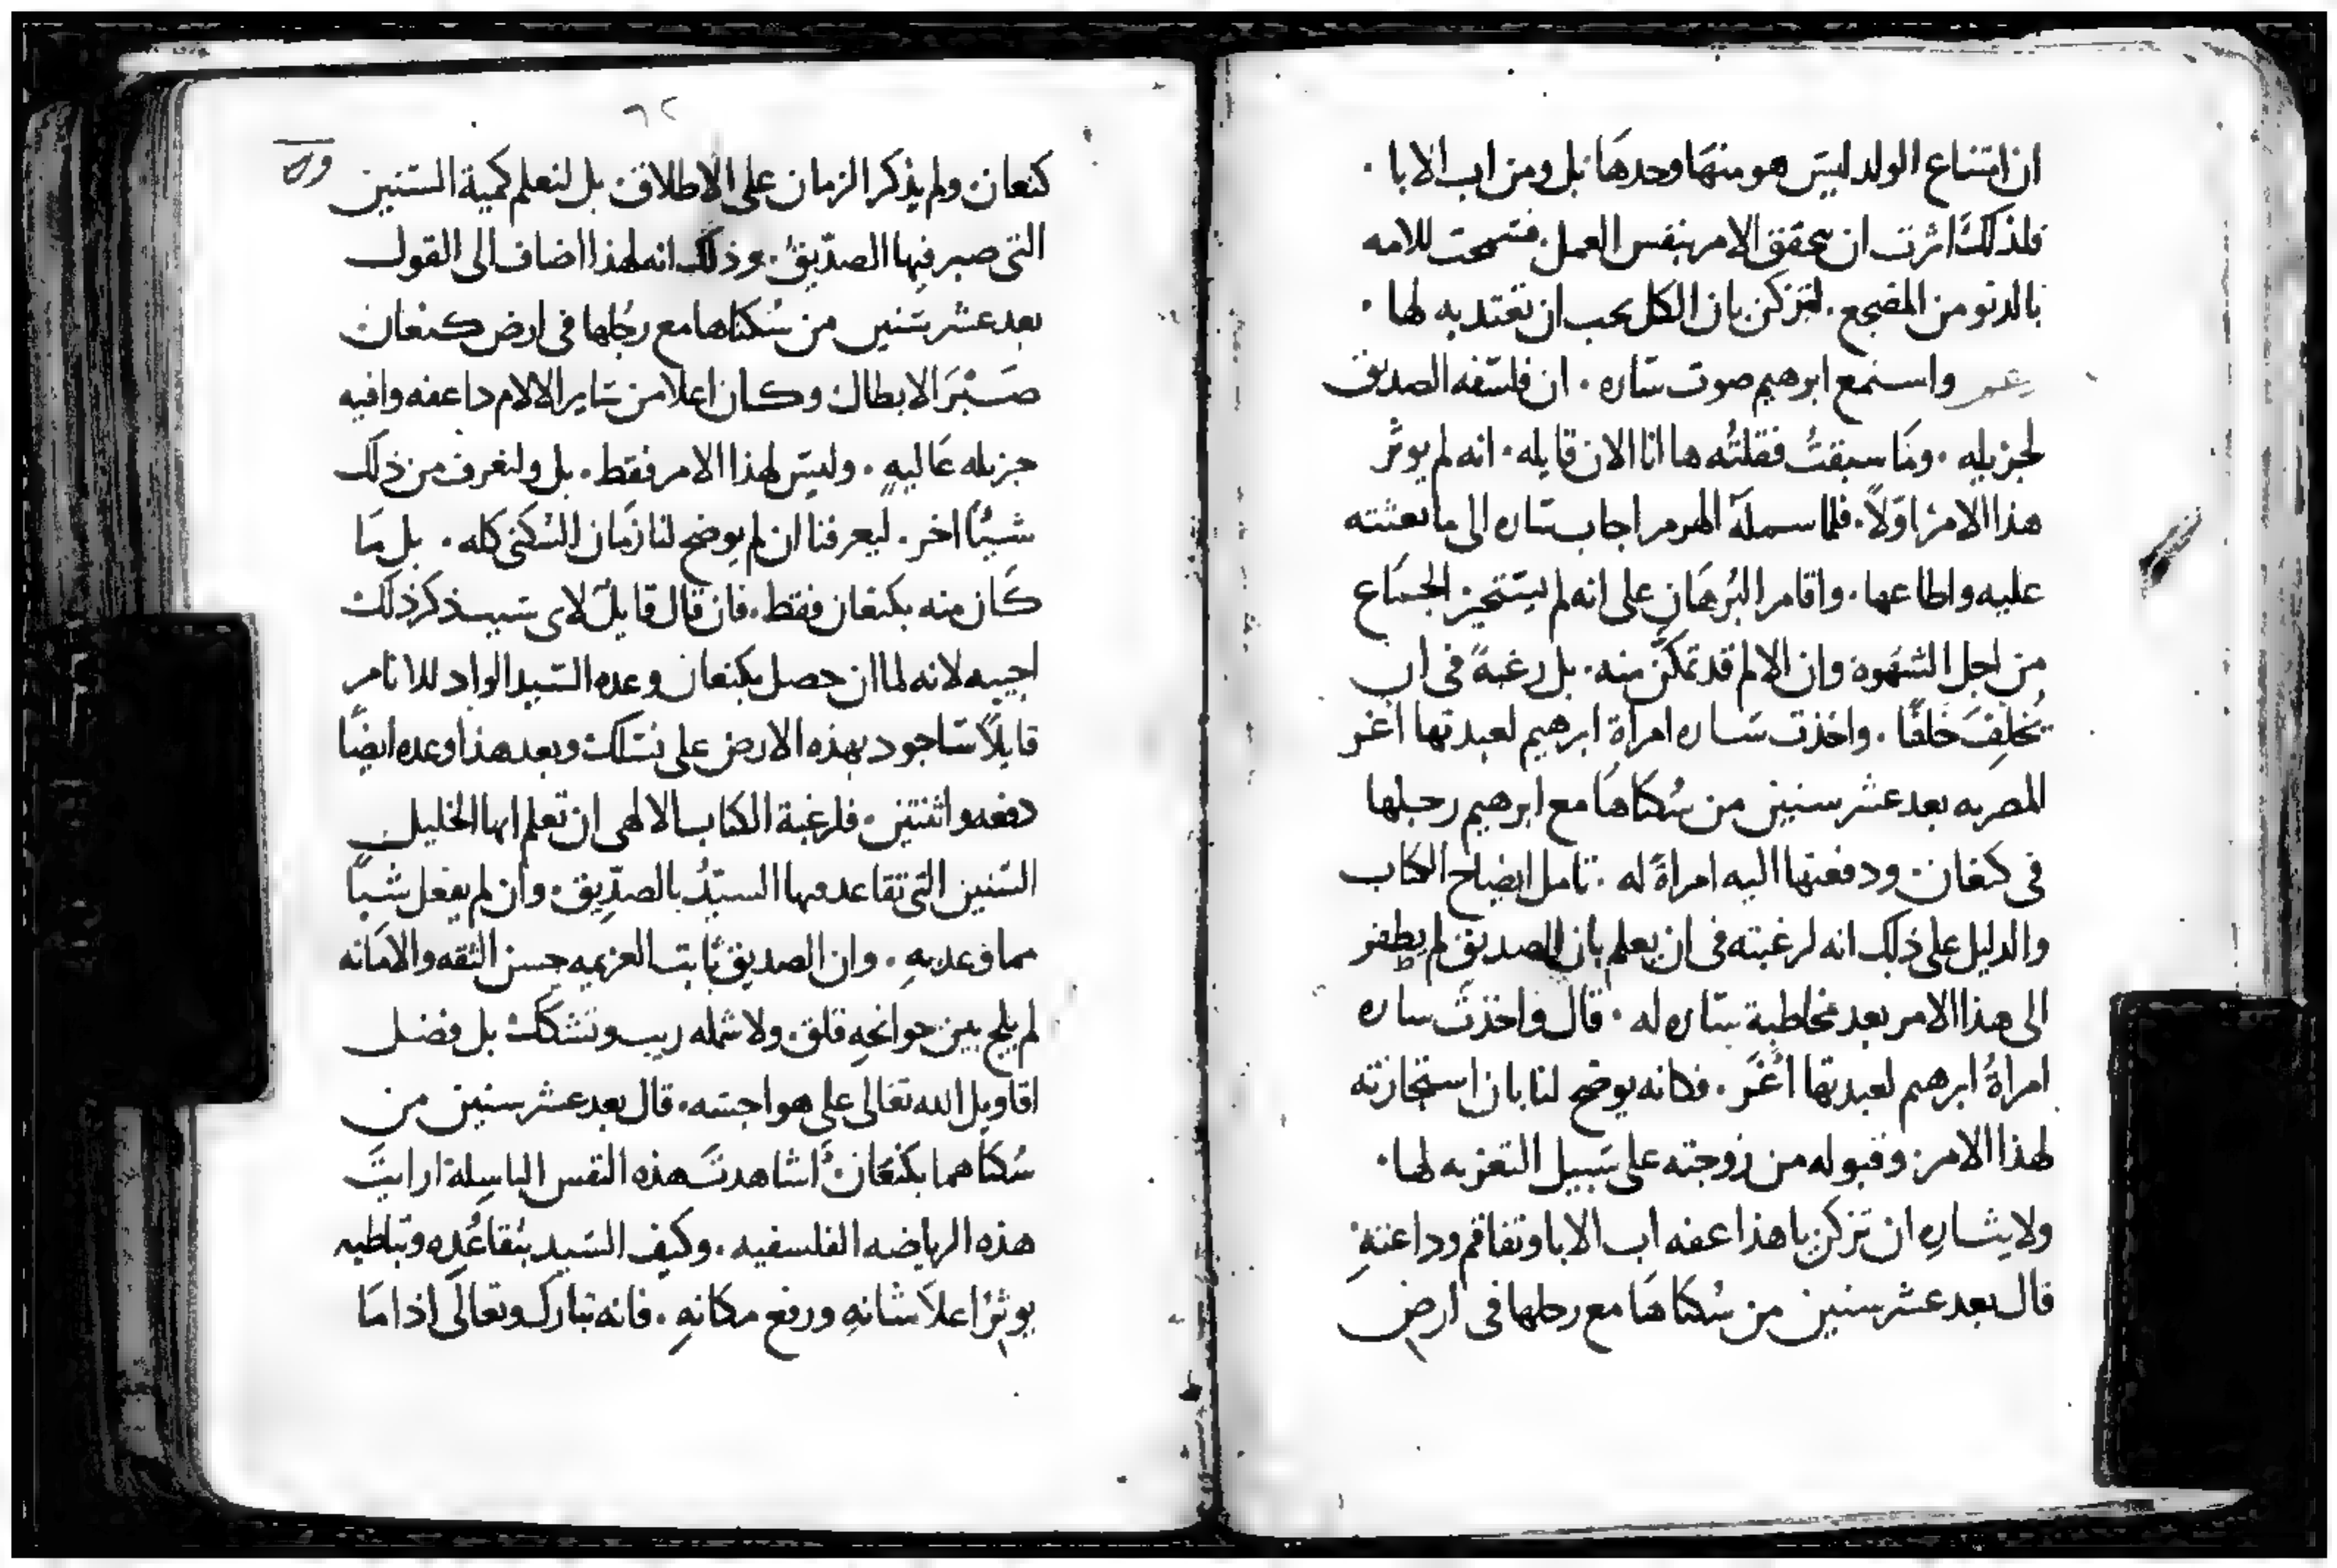 ان امتناع الولد ليس هو منها وحدها بل ومن اب الابا .
فلذلك اثرت ان تحقق الامر بنفس العمل . فسمحت للامه
بالدنو من المضجع . لتزكن بان الكل يجب ان تعتد به لها .
واستمع ابرهيم صوت ساره . ان فلسفه الصديق
لجزيله . وما سبقتُ فقلتُه ها انا الان قايله . انه لم يوثر
هذا الامر اولاً . فلما سمله الهرم اجاب ساره الى ما بعثته
عليه واطاعها . واقام البُرهان على انه لم يستجز الجماع
من اجل الشهوة وان الالم قد تمكن منه . بل رغبةً في ان
يُخلِفَ خَلفًا . واخذت ساره امراة ابرهيم لعبدتها اغر
المصريه بعد عشر سنين من سُكناها مع ابرهيم رجلها
في كنعان ودفعتها اليه امراةً له . تامل ايضاح الكتاب
والدليل على ذلك انه لرغبته في ان يعلم بان الصديق لم يطفر
الى هذا الامر بعد مخاطبة ساره له . قال واخذت ساره
امراةُ ابرهيم لعبدتها اغر . فكانه يوضح لنا بان استجازته
لهذا الامر وقبوله من زوجته على سبيل التعزيه لها .
ولايثاره ان تزكن يا هذا عفه اب الابا وتفاقم وداعته
قال بعد عشر سنين من سُكناها مع رجلها في ارض
٦٢
كنعان . ولم يذكر الزمان على الاطلاق بل لنعلم كمية السنين
التي صبر فيها الصدّيق . وذلك انه لهذا اضاف الى القول
بعد عشر سنين من سُكناها مع رجُلها في ارض كنعان
صَبْرَ الابطال وكان اعلا من ساير الالام ذا عفه وافيه
جزيله عَاليهٍ . وليس لهذا الامر فقط . بل ولنعرف من ذلك
شيًا اخر . ليعرفنا ان لم يوضح لنا زمان السُكنى كله . بل ما
كان منه بكنعان فقط . فان قال قايلٌ لاى سبب ذكر ذلك
اجيبه لانه لما ان حصل بكنعان وعده السيد الواد للانام
قايلاً ساجود بهذه الارض على نسلك وبعد هذا وعده ايضًا
دفعه واثنتين . فلرغبة الكتاب الالهى ان تعلم ايها الخليل
السنين التي تقاعد فيها السيّدُ بالصدِّيق . وان لم يفعل شيًا
مما وعد بهِ . وان الصديق ثابت العزيمه حسن الثقه والامانه
لم يلج بين جوانحهِ قلق . ولا شمله ريب وتشكك بل فضل
اقاويل الله تعالى على هواجسه . قال بعد عشر سنين من
سُكناهما بكنعان أشاهدتَ هذه النفس الباسِلة ارايتَ
هذه الرياضه الفلسفيه . وكيف السيد بتقاعُدِه وتباطيه
يوثر اعلاَ شانهِ ورفع مكانهِ . فانه تبارك وتعالى اذا ما